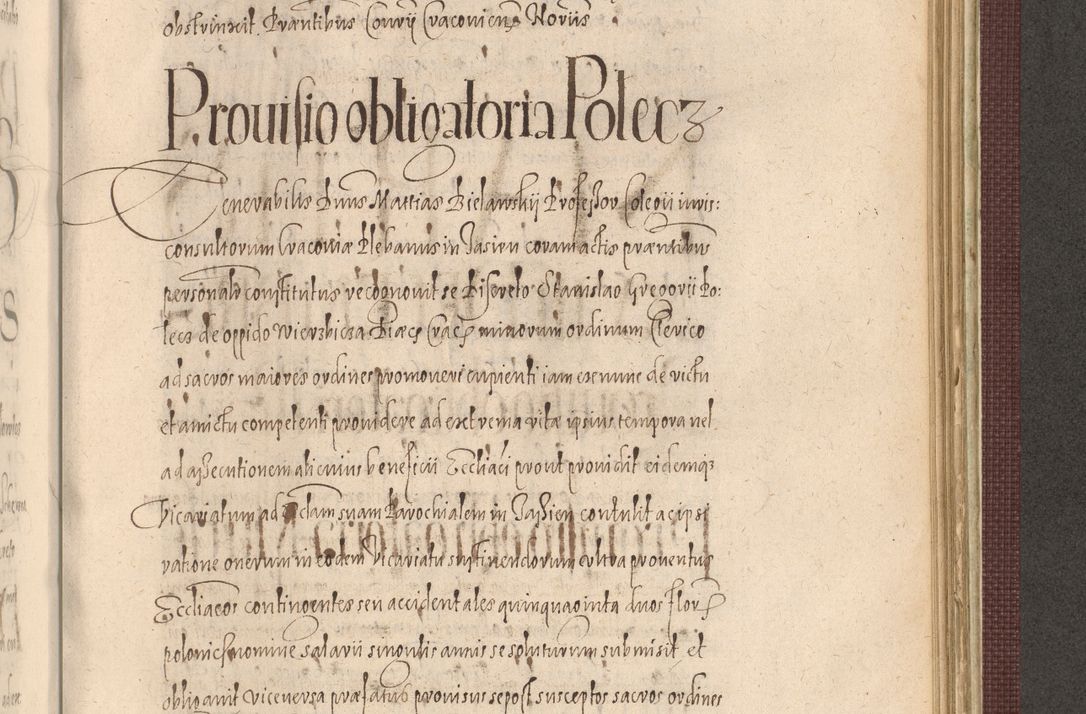 obstrinxit. Præntibus Conrÿ Cracoviens Noriis
Prouisio obligatoria Polecz
Venerabilis Dnns Mattias Bielawskij Professor Colegii iuris:
consultorum Cracoviæ Plebanus in Jasien coram actis præntibus
personalr constitutus recognovit se Discreto Stanislao Gregorii Po:
lecz de oppido Wierzbicza Diæcs Cracs minorum ordinum Clerico
ad sacros maiores ordines promoveri cupienti iam exnunc de victu
et amictu competenti providere ad extrema vitæ ipsius tempora vel
ad assecutionem alicuius beneficii Eccliaci prout providit eidemqz
Vicariatum ad Ecclam suam Parochialem in Jassien contulit ac ipsi
ratione onerum in eodem Vicariatu sustinendorum evltra proventus
Eccliaeos contingentes seu accidentales quinquaginta duos flor
polonics nomine salarii singulis annis se soluturum submisit, et
obligavit viceversa præfatus provisus se post susceptos sacros ordines